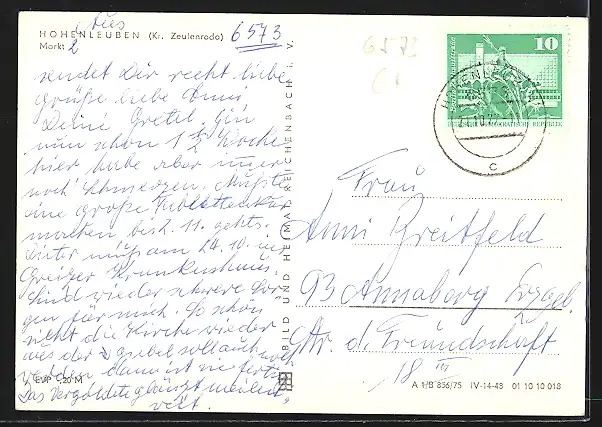 Aus
HOHENLEUBEN (Kr. Zeulenroda) 6573
Markt 2
sendet Dir recht liebe
grüße liebe Anni
Deine Gretel. Bin
nun schon 1 1/2 Woche
hier habe aber immer
noch Schmerzen. Mußte
eine große Tablettenkur
machen bis 2. 11. gehts.
Dieter muß am 24.10. ins
Greizer Krankenhaus,
Sind wieder schwere Sor-
gen für mich. So schön
sieht die Kirche wieder
aus der 2 Giebel soll auch noch
werden dann ist sie fertig
Das Vergoldete glänzt meilen-
weit.
EVP 0,20 M
BILD UND HEIMAT REICHENBACH i. V.
6573
10
DEUTSCHE DEMOKRATISCHE REPUBLIK
HOHENLEUBEN
c
Frau
Anni Breitfeld
93 Annaberg Erzgeb.
Str. d. Freundschaft
18 III
A 1/B 856/75 IV-14-48 01 10 10 018